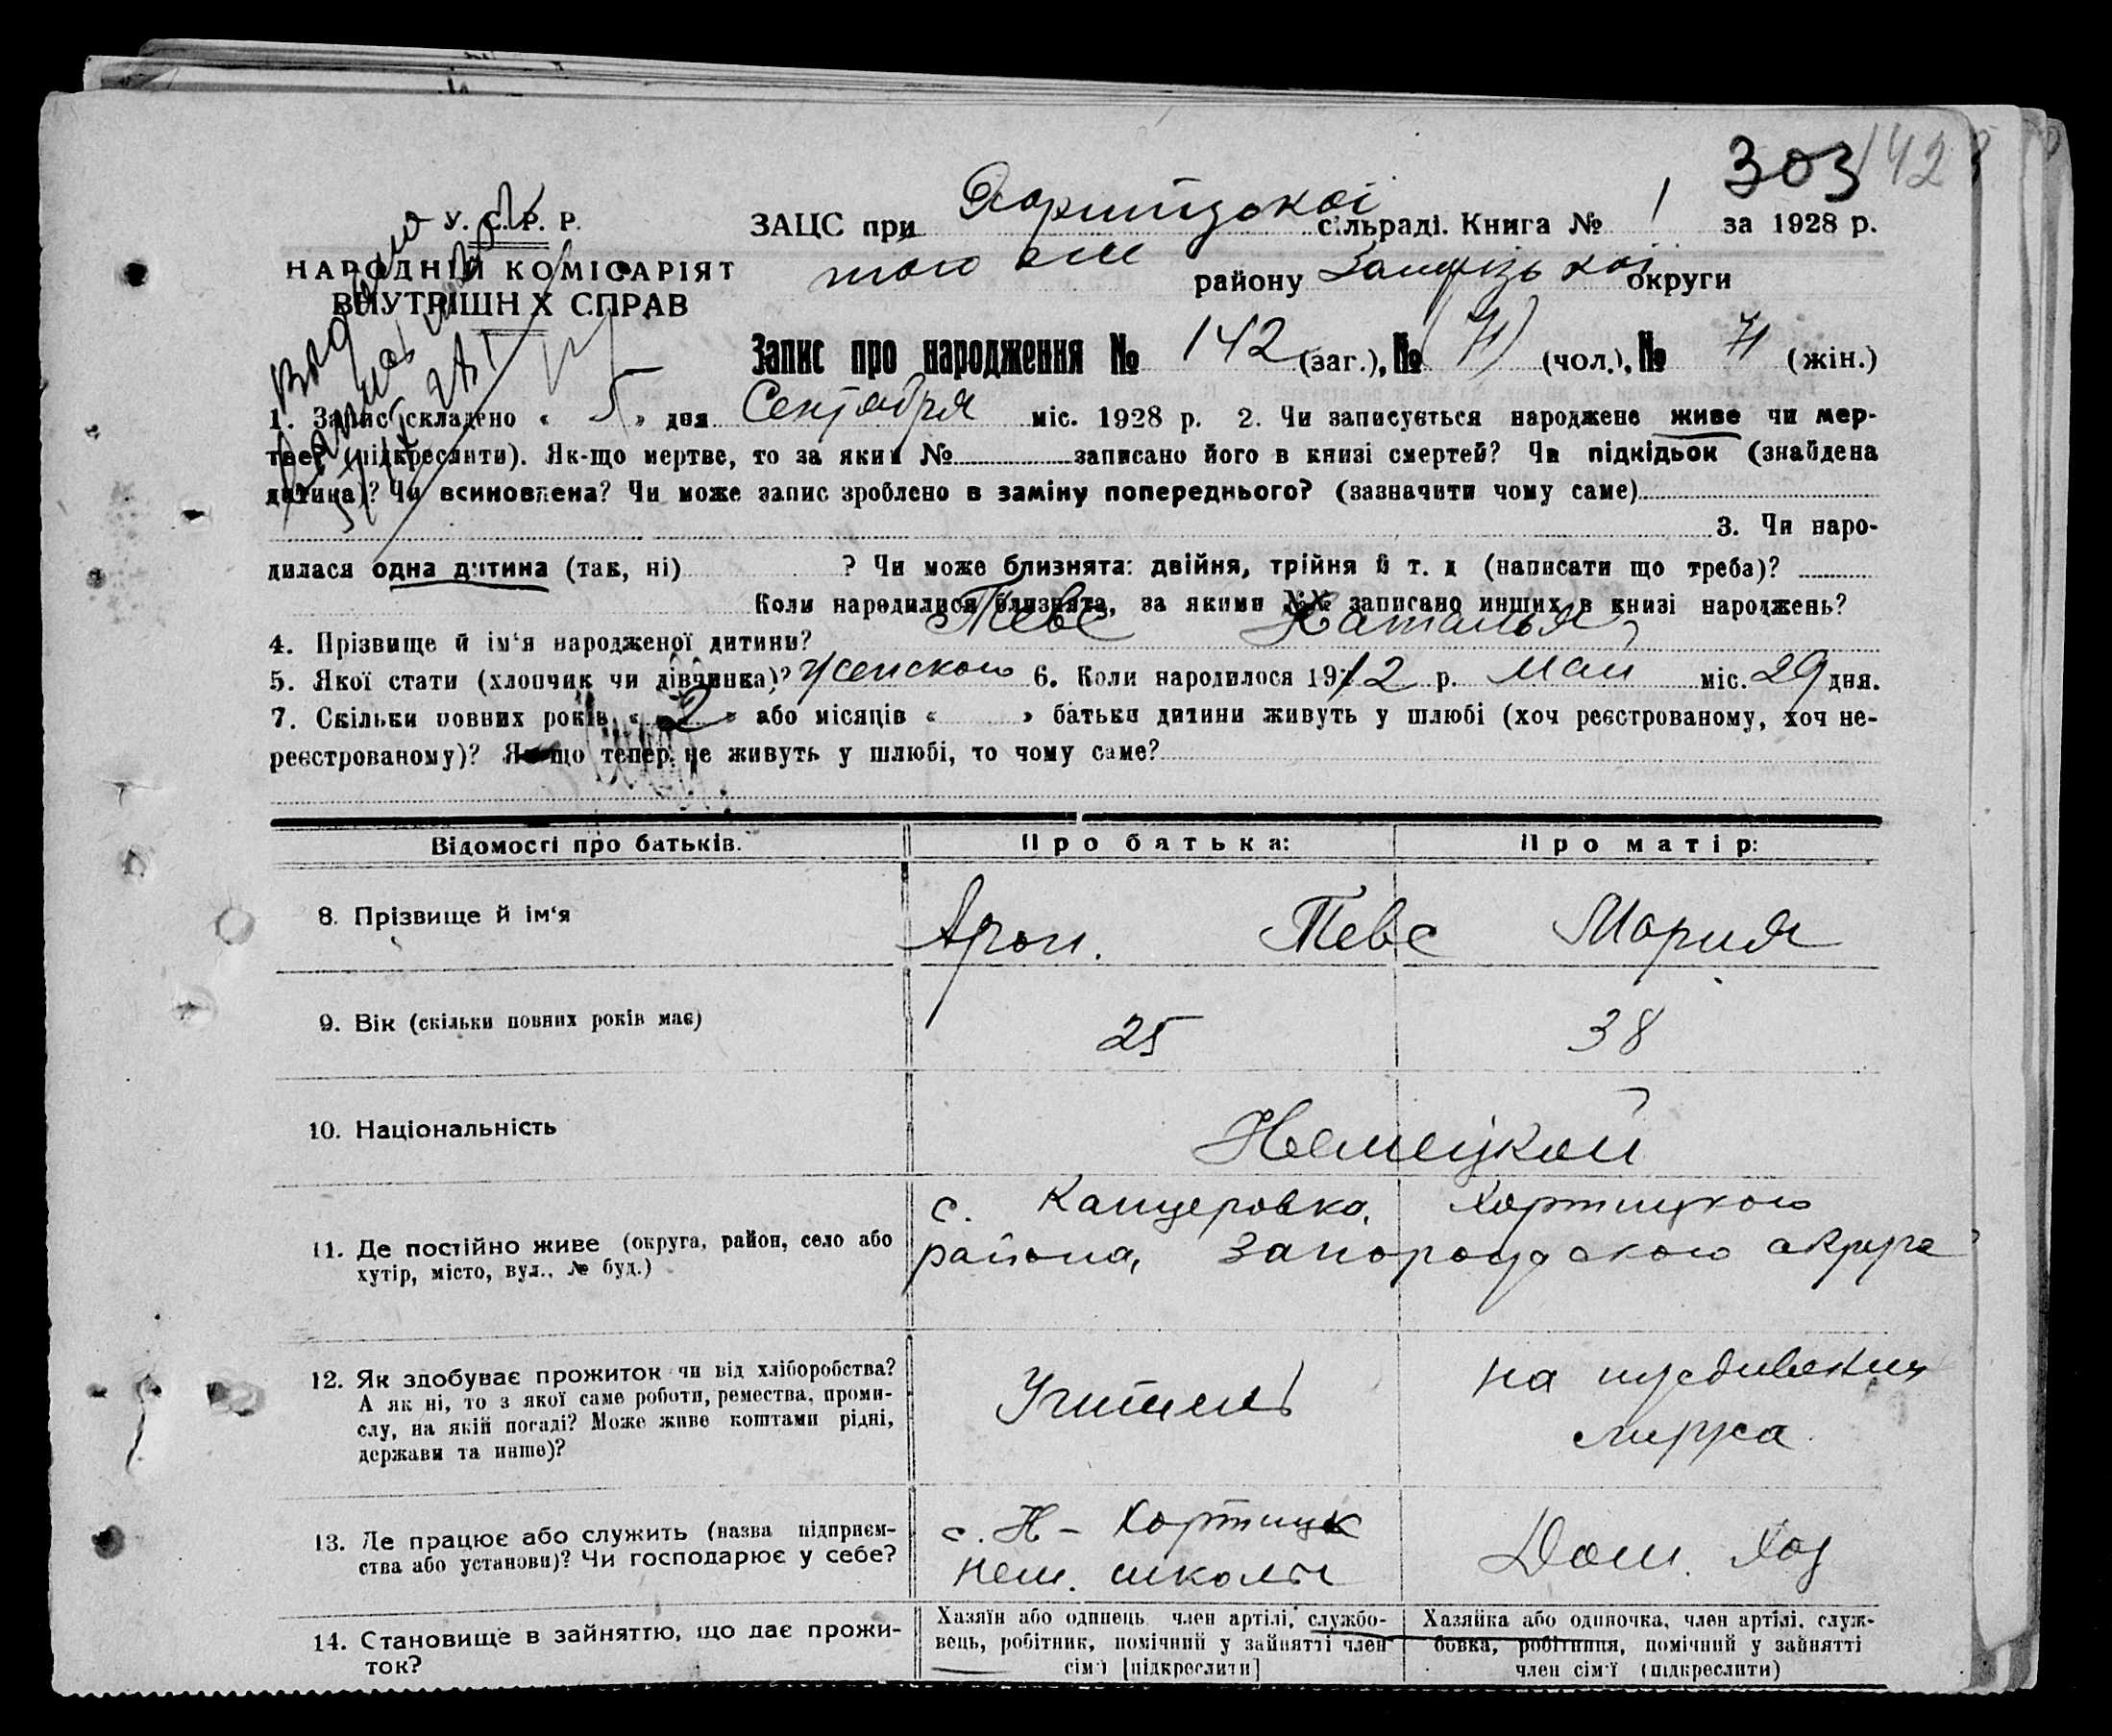 303 142
У. С. Р. Р.
НАРОДНІЙ КОМІСАРІЯТ
ВНУТРІШН Х СПРАВ
ЗАЦС при Хортицької сільраді. Книга № 1 за 1928 р.
того же району Запорізької округи
Запис про народження № 142 (заг.), № (71) (чол.), № 71 (жін.)
1. Запис складено « 5 » дня Сентября міс. 1928 р. 2. Чи записується народжене живе чи мер-
тве (підкреслити). Як-що мертве, то за яким № записано його в книзі смертей? Чи підкідьок (знайдена
дитина)? Чи всиновлена? Чи може запис зроблено в заміну попереднього? (зазначити чому саме)
3. Чи наро-
дилася одна дитина (так, ні) ? Чи може близнята: двійня, трійня й т. д (написати що треба)?
Коли народилися близнята, за якими №№ записано инших в книзі народжень?
4. Прізвище й ім‘я народженої дитини? Тевс Наталья
5. Якої стати (хлопчик чи дівчинка)? женского 6. Коли народилося 1912 р. Май міс. 29 дня.
7. Скільки повних років « 2 » або місяців « » батьки дитини живуть у шлюбі (хоч реєстрованому, хоч не-
реєстрованому)? Як-що тепер не живуть у шлюбі, то чому саме?
Відомості про батьків. Про батька: Про матір:
8. Прізвище й ім‘я Арон. Тевс Мария
9. Вік (скільки повних років має) 25 38
10. Національність Немецкой
11. Де постійно живе (округа, район, село або
хутір, місто, вул., № буд.)
с. Канцеровка, Хортицкого
района, Запорожского округа
12. Як здобуває прожиток чи від хліборобства?
А як ні, то з якої саме роботи, ремества, проми-
слу, на якій посаді? Може живе коштами рідні,
держави та инше)?
Учитель
на иждивении
мужа
13. Де працює або служить (назва підприєм-
ства або установи)? Чи господарює у себе?
с. Н-Хортицк
нем. школы
Дом. Хоз
14. Становище в зайняттю, що дає прожи-
ток?
Хазяїн або одинець, член артілі, службо-
вець, робітник, помічний у зайнятті член
сім‘ї [підкреслити]
Хазяйка або одиночка, член артілі, служ-
бовка, робітниця, помічний у зайнятті
член сім‘ї (підкреслити)